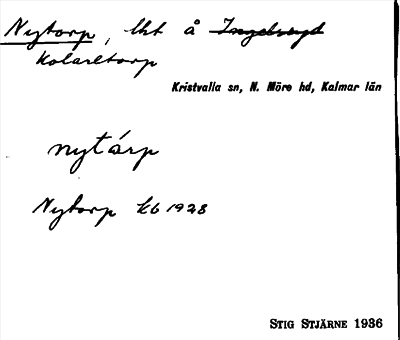 Nytorp, lht å Ingelsryd
Kolaretorp
Kristvalla sn, N. Möre hd, Kalmar län
nytårp
Nytorp kb 1928
STIG STJÄRNE 1936